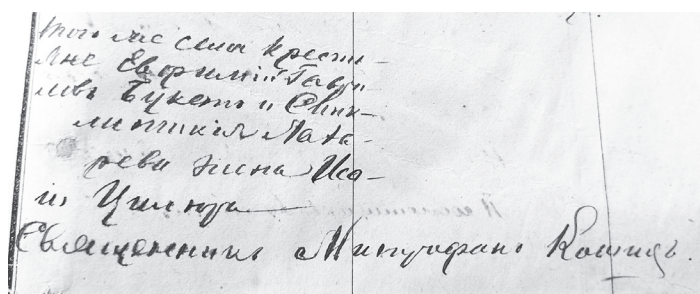 того же села кресть-
яне Евфимій Гаври-
ловъ Букетъ и Син-
клитикія Лаза-
рева жена Иса-
ія
Священникъ Митрофанъ Кошицъ.